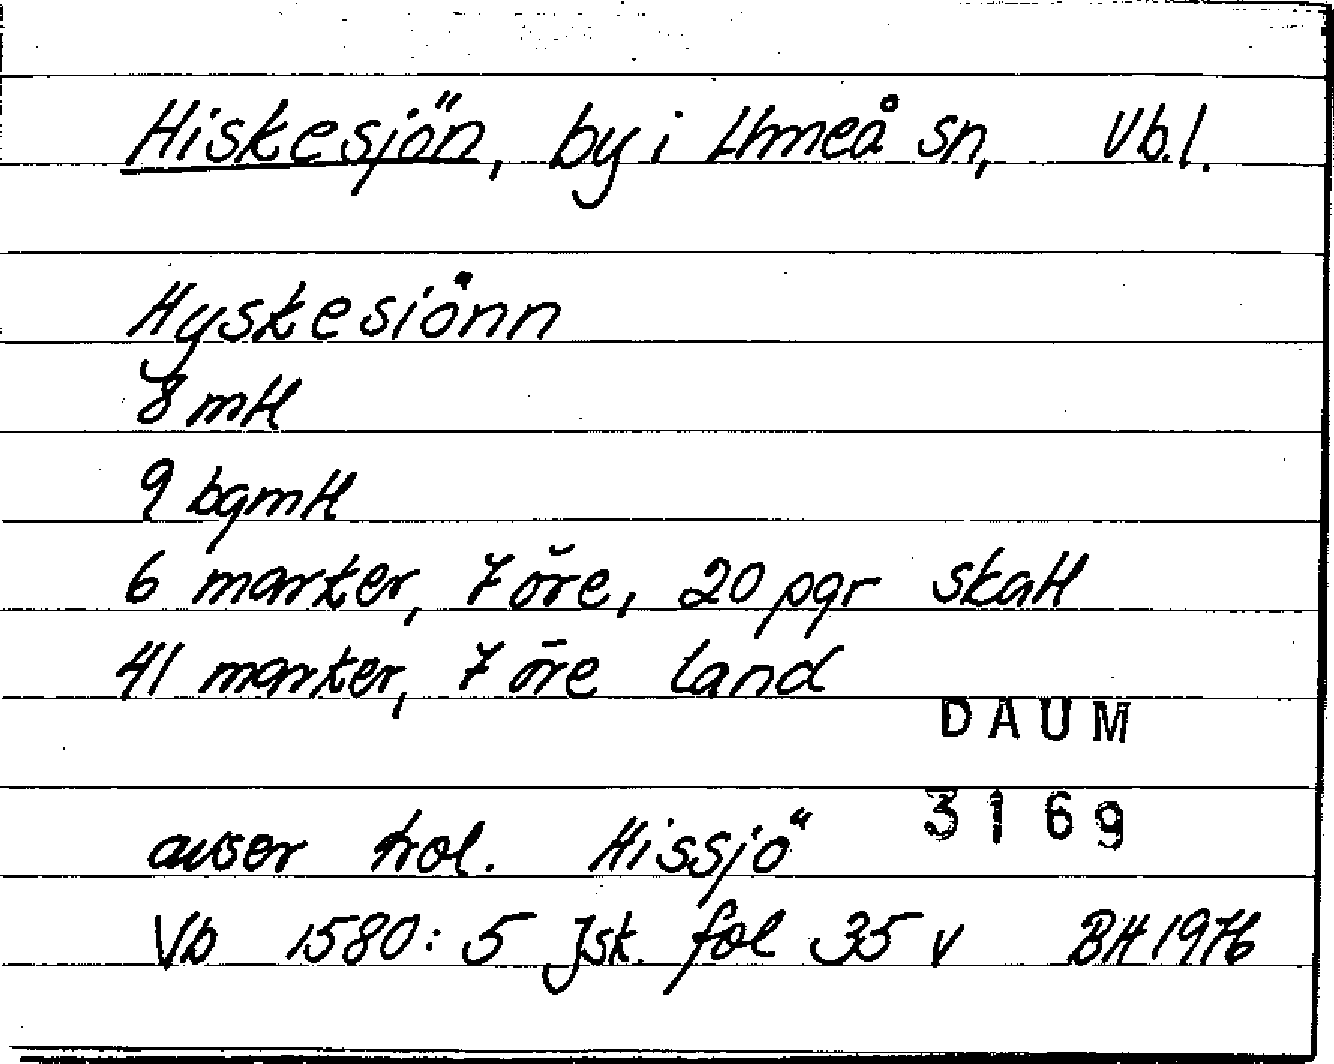 Hiskesjön, by i Umeå sn, Vb.l.
Hyskesiönn
8 mtl
9 bgmtl
6 marker, 7 öre, 20 pgr skatt
41 marker, 7 öre land
DAUM
3169
avser trol. Hissjö
Vb 1580:5 Jsk. fol 35 v BH 1976